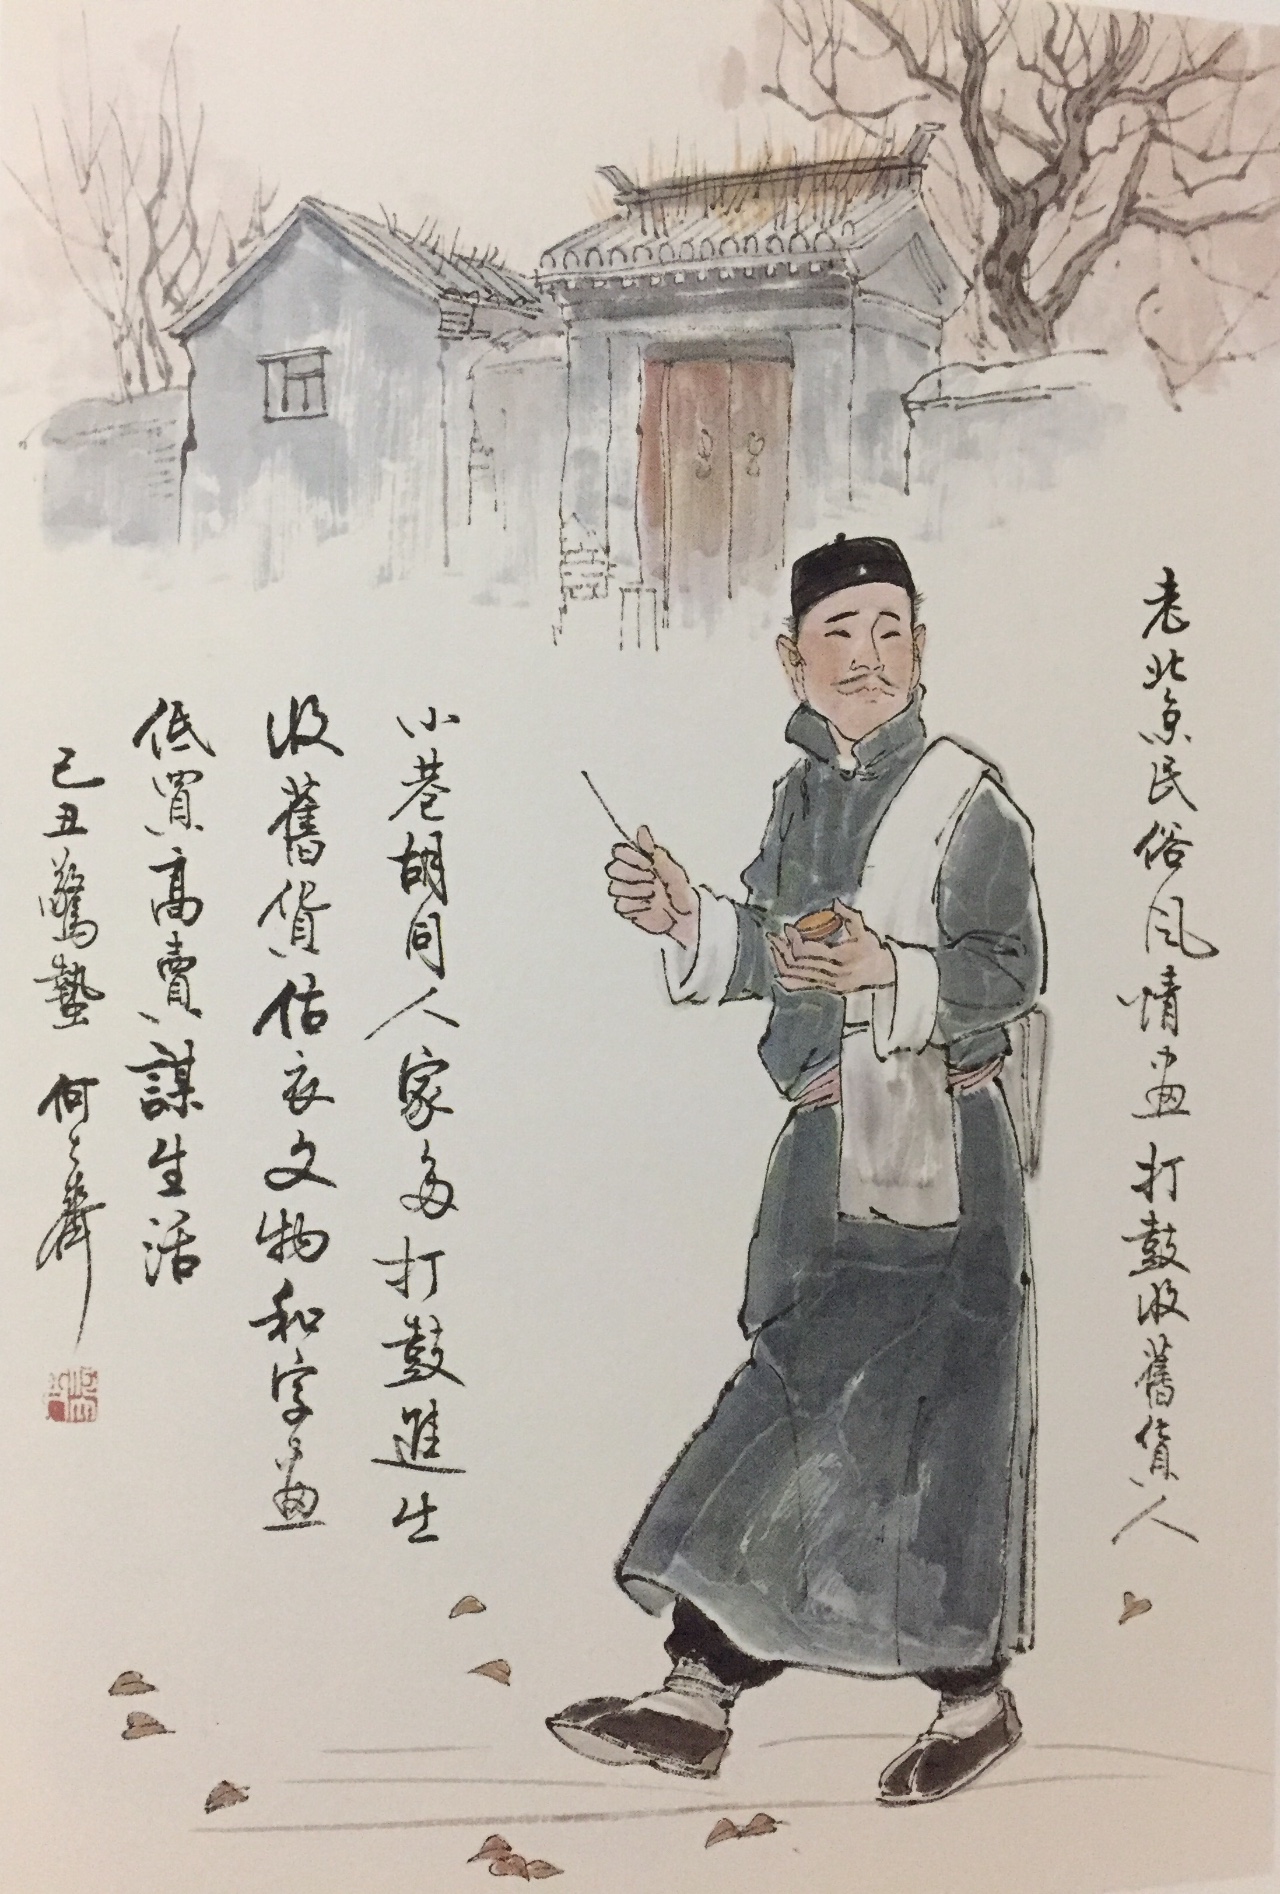 老北京民俗风情畫打鼓收舊货人
小巷胡同人家多打鼓進生
收舊货估衣文物和字畫
低買高賣謀生活
己丑驚蟄何